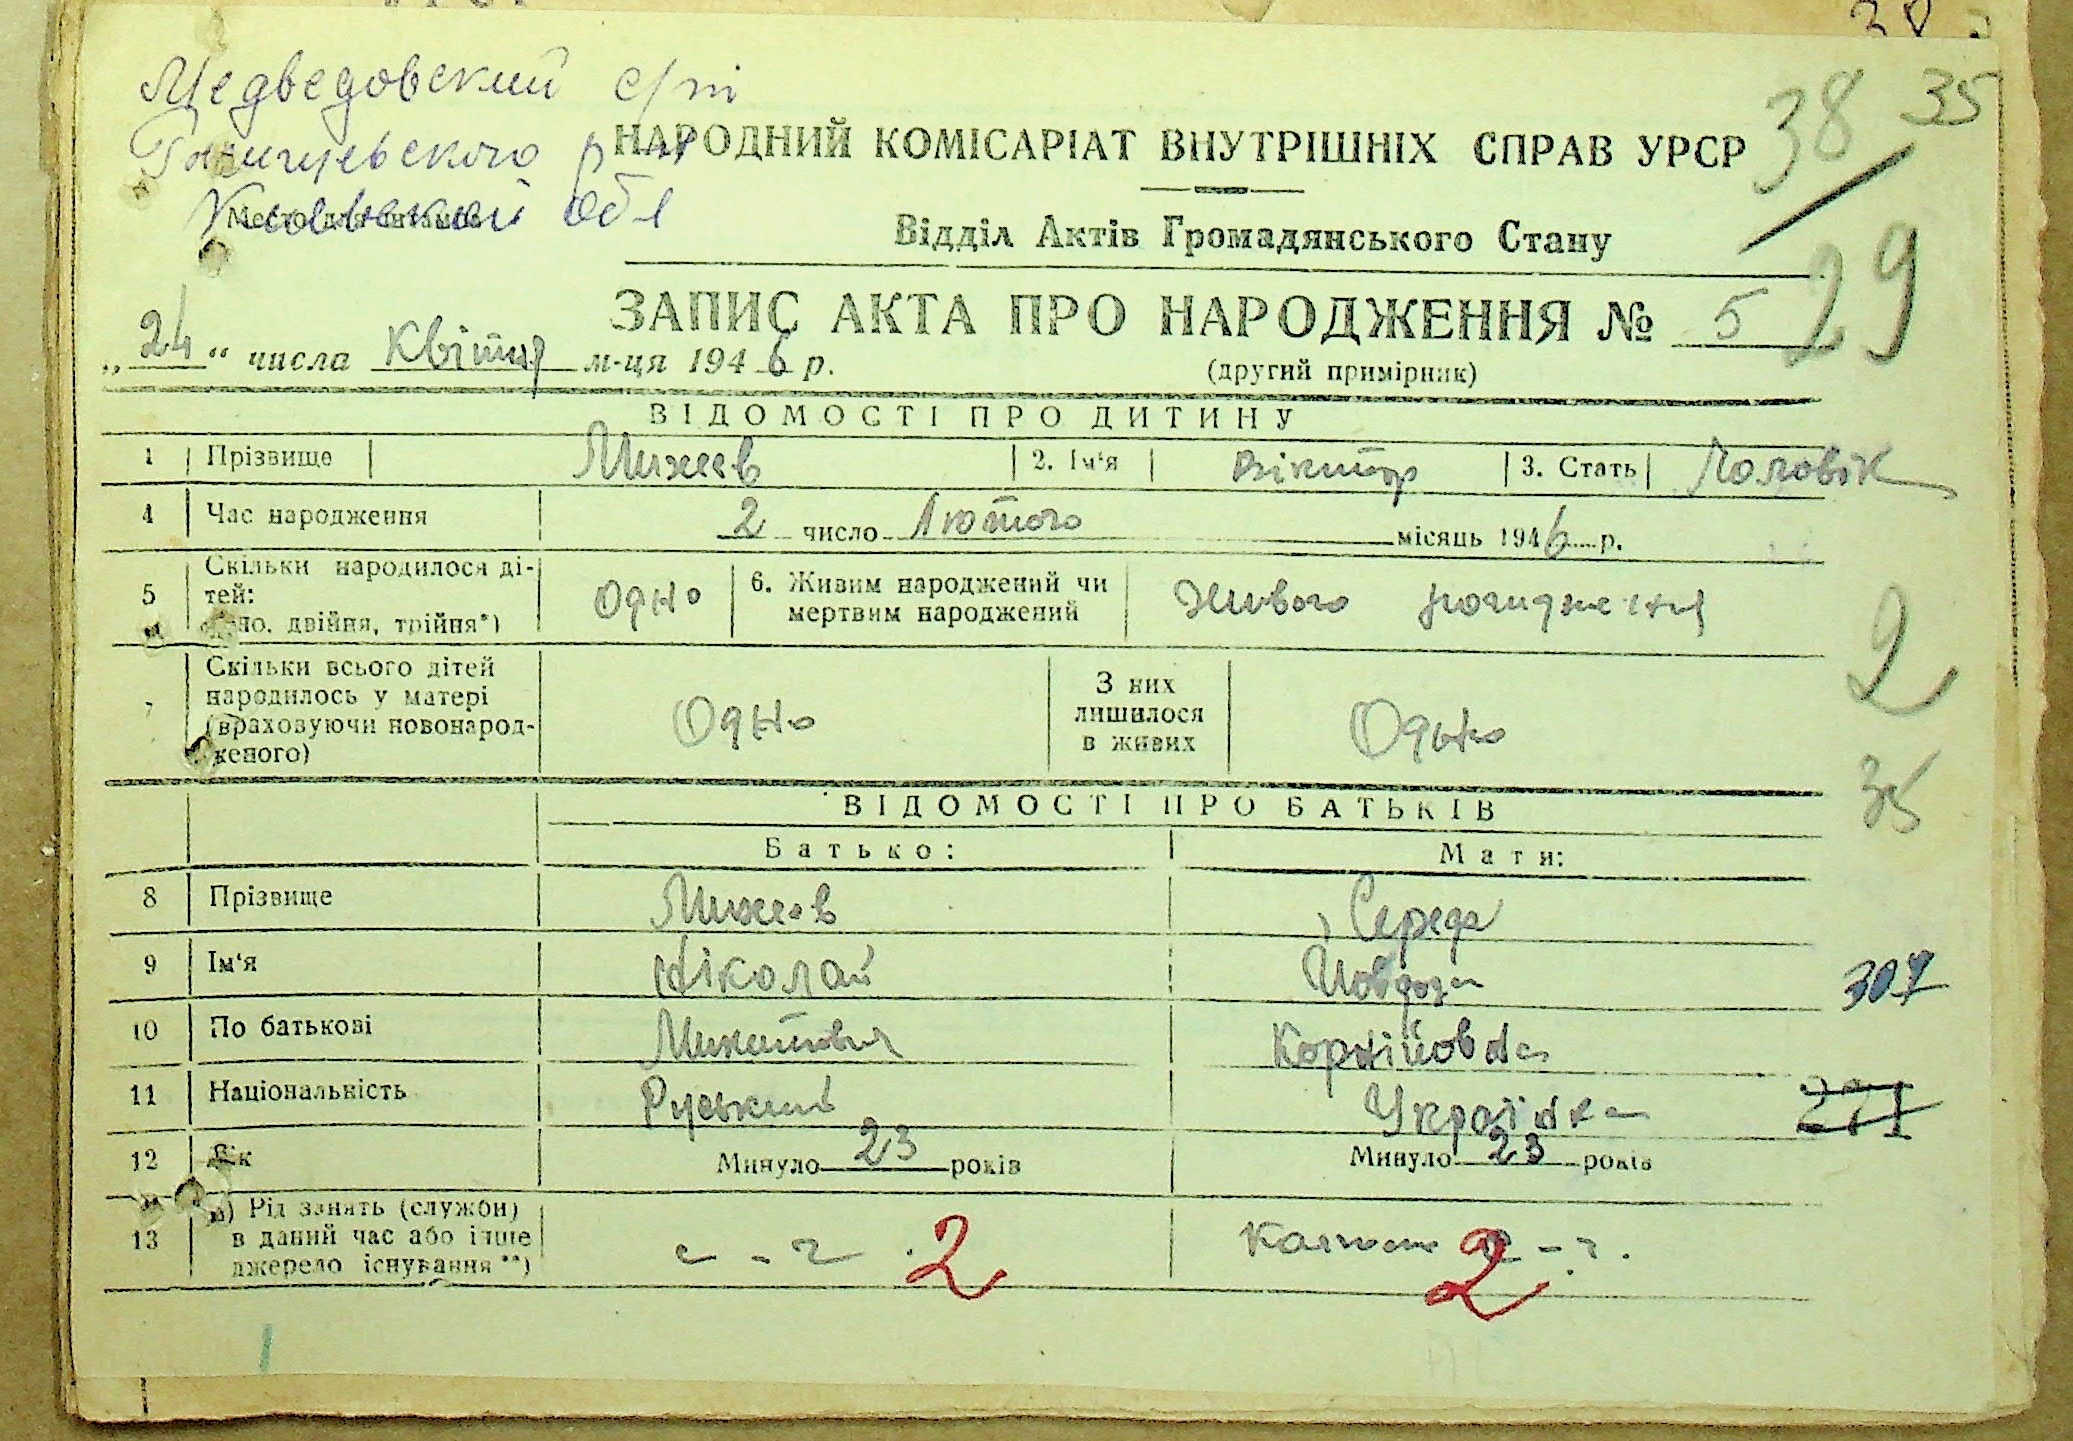 38
Медведовский с/т 35
38
НАРОДНИЙ КОМІСАРІАТ ВНУТРІШНІХ СПРАВ УРСР
обл
Відділ Актів Громадянського Стану
29
ЗАПИС АКТА ПРО НАРОДЖЕННЯ № 5
„24“ числа Квітня м-ця 1946 р.
(другий примірник)
ВІДОМОСТІ ПРО ДИТИНУ
1 Прізвище Михеев 2. Ім'я Віктор 3. Стать Чоловік
4 Час народження 2 число Лютого місяць 1946 р.
5 Скільки народилося ді-
тей:
двійня, трійня*)
Одно
6. Живим народжений чи
мертвим народжений
Живого
2
7 Скільки всього дітей
народилось у матері
(враховуючи новонарод-
женого)
Одно
З них
лишилося
в живих
Одно
35
ВІДОМОСТІ ПРО БАТЬКІВ
Батько: Мати:
8 Прізвище Михеев Середа
9 Ім'я Ніколай 307
10 По батькові Корнійовна
11 Національність Руський Українка 271
12 Вік Минуло 23 років Минуло 23 років
13 а) Рід занять (служби)
в даний час або інше
джерело існування**)
2 2